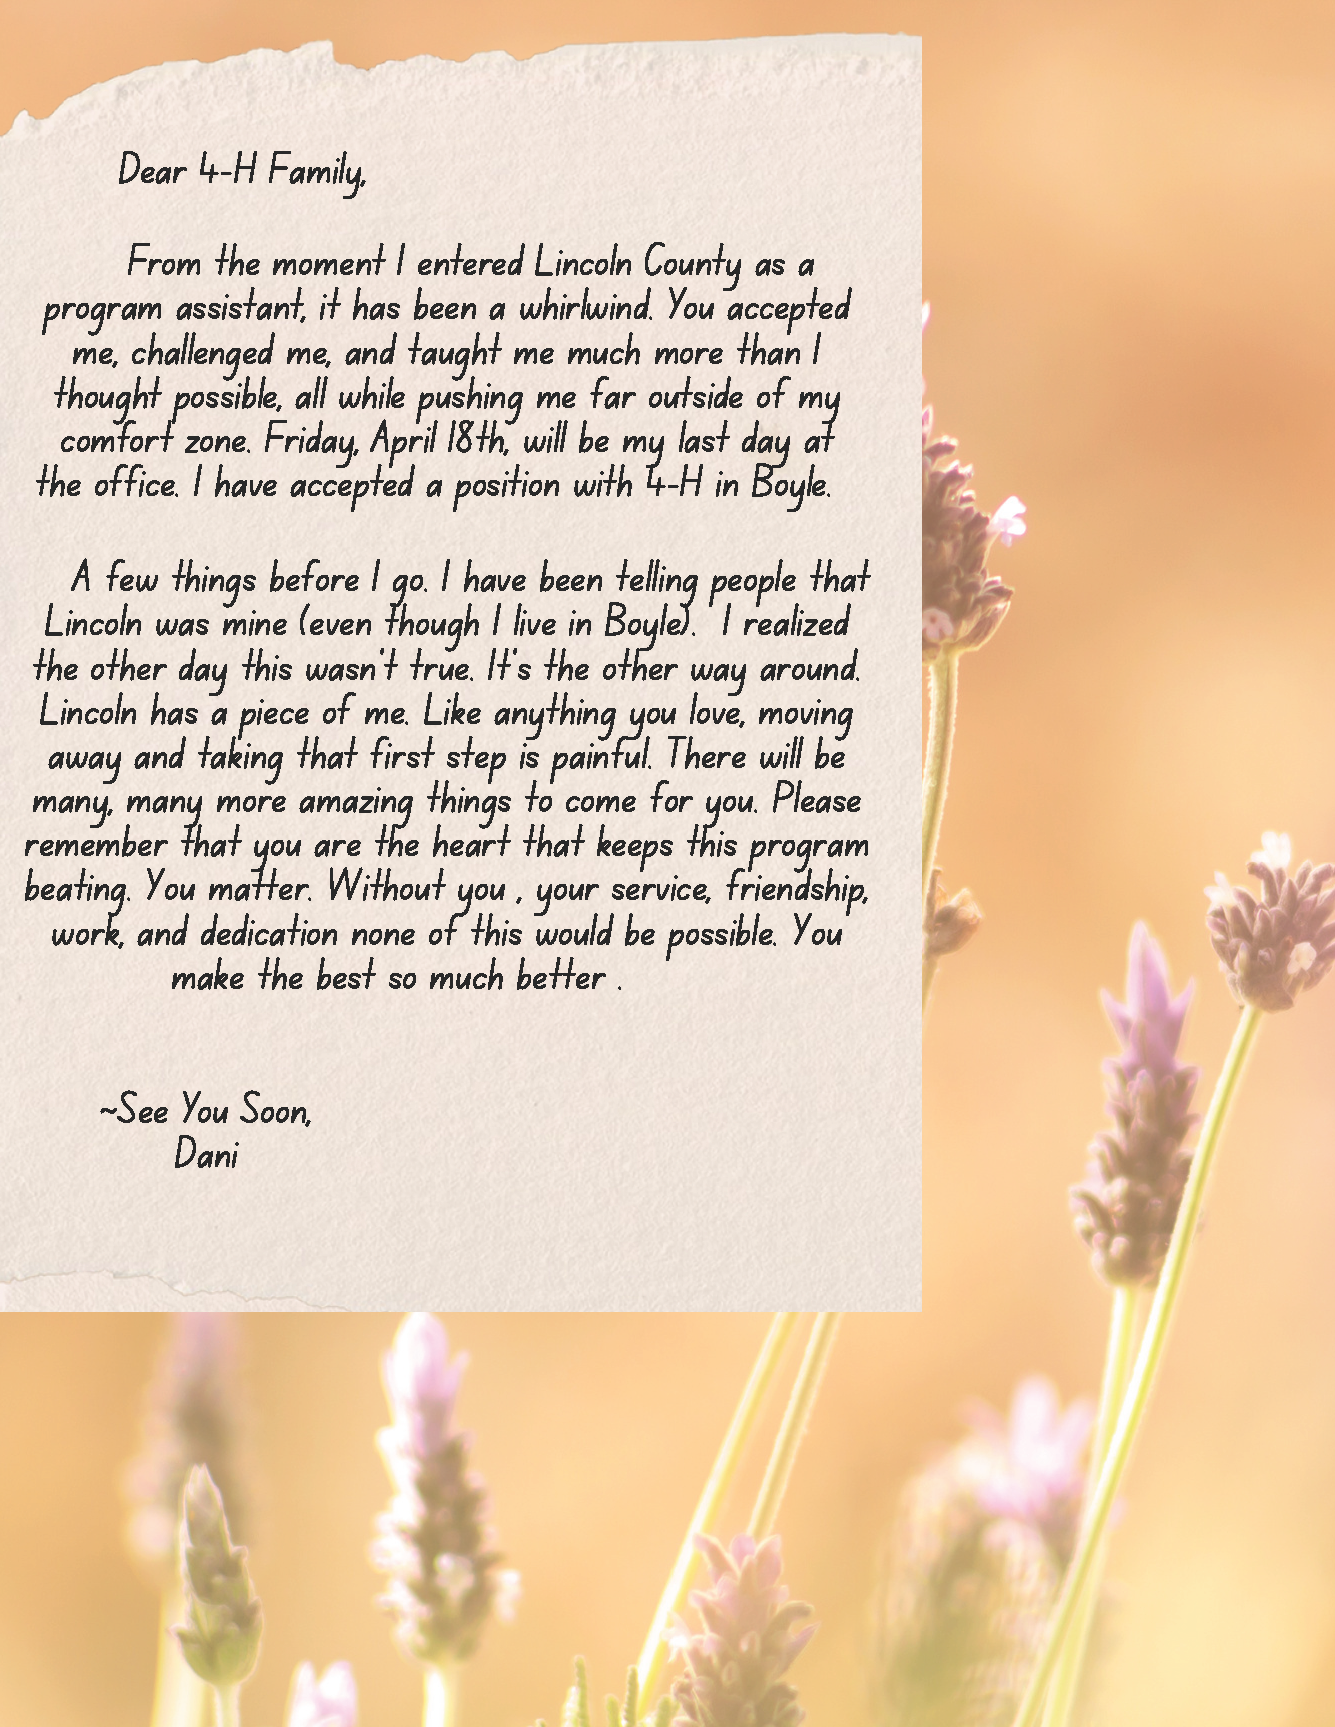 Dear 4-H Family,
From the moment I entered Lincoln County as a
program assistant, it has been a whirlwind. You accepted
me, challenged me, and taught me much more than I
thought possible, all while pushing me far outside of my
comfort zone. Friday, April 18th, will be my last day at
the office. I have accepted a position with 4-H in Boyle.
A few things before I go. I have been telling people that
Lincoln was mine (even though I live in Boyle). I realized
the other day this wasn't true. It's the other way around.
Lincoln has a piece of me. Like anything you love, moving
away and taking that first step is painful. There will be
many, many more amazing things to come for you. Please
remember that you are the heart that keeps this program
beating. You matter. Without you , your service, friendship,
work, and dedication none of this would be possible. You
make the best so much better .
~See You Soon,
Dani